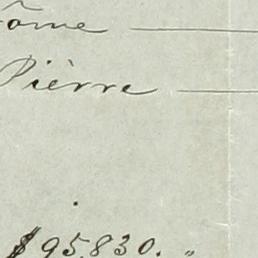 ôme
Pièrre
$95,830. "